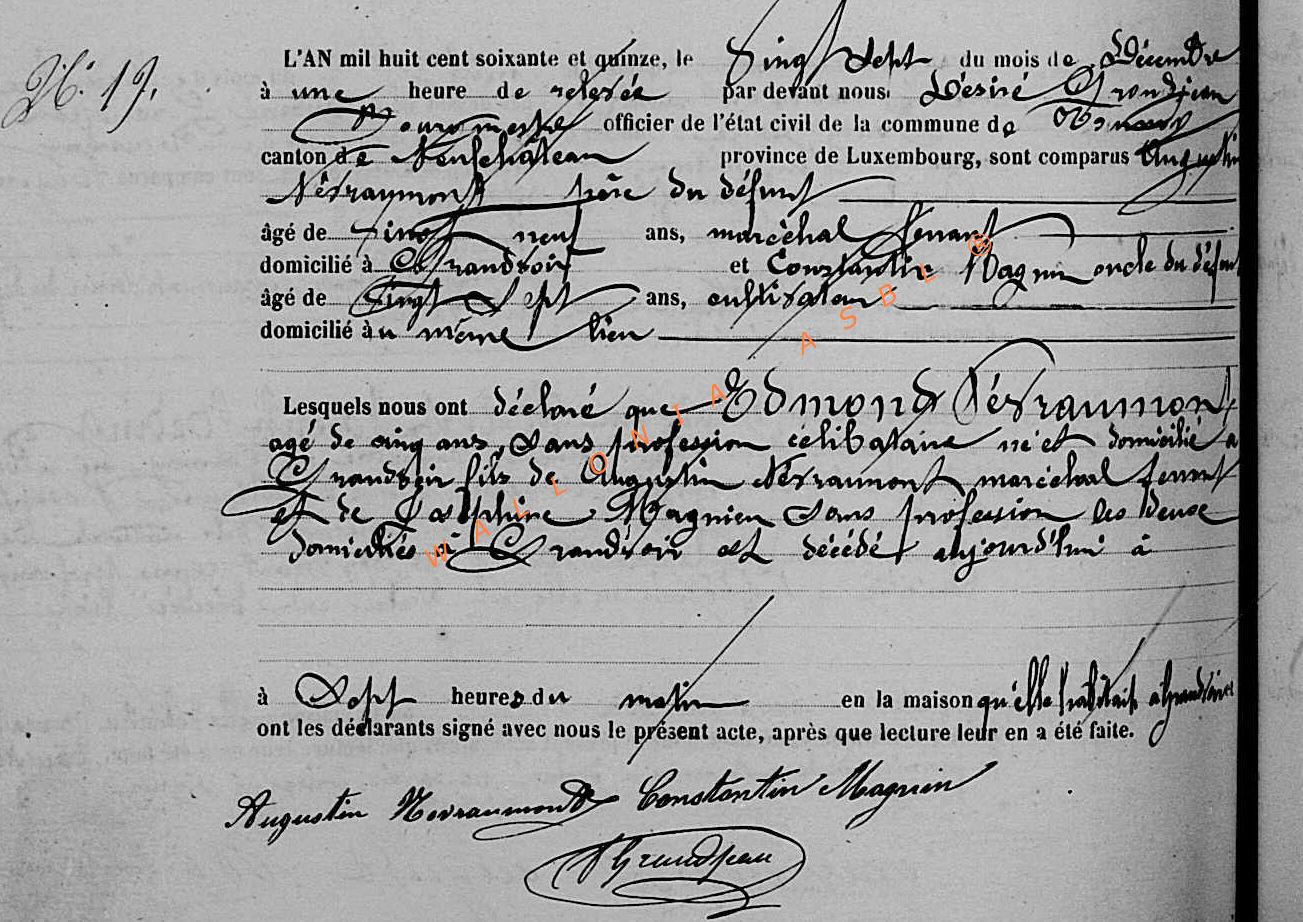 N° 19.
L'AN mil huit cent soixante et quinze, le Vingt Sept du mois de Décembre
à une heure de relevée par devant nous Désiré Grandjean
Bourgmestre officier de l'état civil de la commune de
canton de Neufchâteau province de Luxembourg, sont comparus Augustin
Névraumont père du défunt
âgé de Vingt neuf ans, maréchal ferrant
domicilié à Grandvoir et Constantin Magnien oncle du défunt
âgé de Vingt Sept ans, cultivateur
domicilié au même lieu
Lesquels nous ont déclaré que Edmond Névraumont
agé de cinq ans, Sans profession célibataire né et domicilié à
Grandvoir fils de Augustin Névraumont maréchal ferrant
et de Joséphine Magnien Sans profession les deux
domiciliés à Grandvoir est décédé aujourd'hui à
à Sept heures du matin en la maison qu'elle habitait à Grandvoir
ont les déclarants signé avec nous le présent acte, après que lecture leur en a été faite.
Augustin Nevraumont Constantin Magnien
Grandjean
WALLONIA ASBL ®